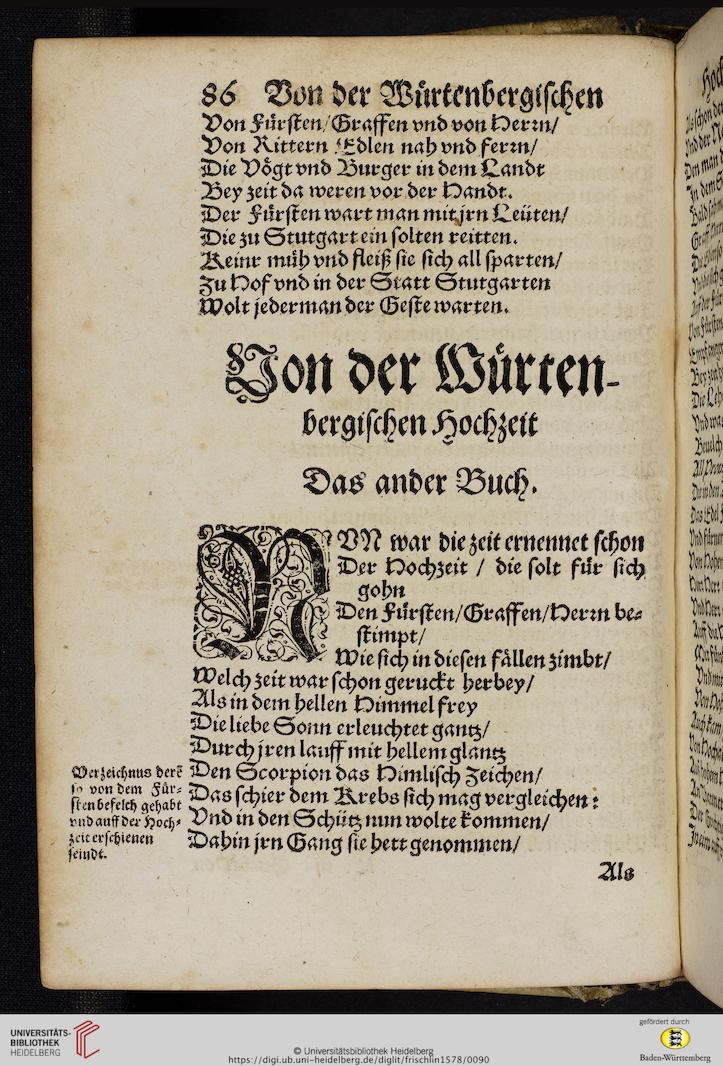 86 Von der Würtenbergischen
Von Fürsten/Graffen vnd von Herrn/
Von Rittern/Edlen nah vnd ferrn/
Die Vögt vnd Burger in dem Landt
Bey zeit da weren vor der Handt.
Der Fürsten wart man mit jrn Leüten/
Die zu Stutgart ein solten reitten.
Keinr müh vnd fleiß sie sich all sparten/
Zu Hof vnd in der Statt Stutgarten
Wolt jederman der Geste warten.
Von der Würten-
bergischen Hochzeit
Das ander Buch.
NVN war die zeit ernennet schon
Der Hochzeit / die solt für sich
gohn
Den Fürsten/Graffen/Herrn be-
stimpt/
Wie sich in diesen fällen zimbt/
Welch zeit war schon geruckt herbey/
Als in dem hellen Himmel frey
Die liebe Sonn erleuchtet gantz/
Durch jren lauff mit hellem glantz
Den Scorpion das Himlisch Zeichen/
Das schier dem Krebs sich mag vergleichen:
Vnd in den Schütz nun wolte kommen/
Dahin jrn Gang sie hett genommen/
Verzeichnus derẽ
so von dem Für-
sten befelch gehabt
vnd auff der Hoch-
zeit erschienen
seindt.
Als
UNIVERSITÄTS-
BIBLIOTHEK
HEIDELBERG
© Universitätsbibliothek Heidelberg
https://digi.ub.uni-heidelberg.de/diglit/frischlin1578/0090
gefördert durch
Baden-Württemberg